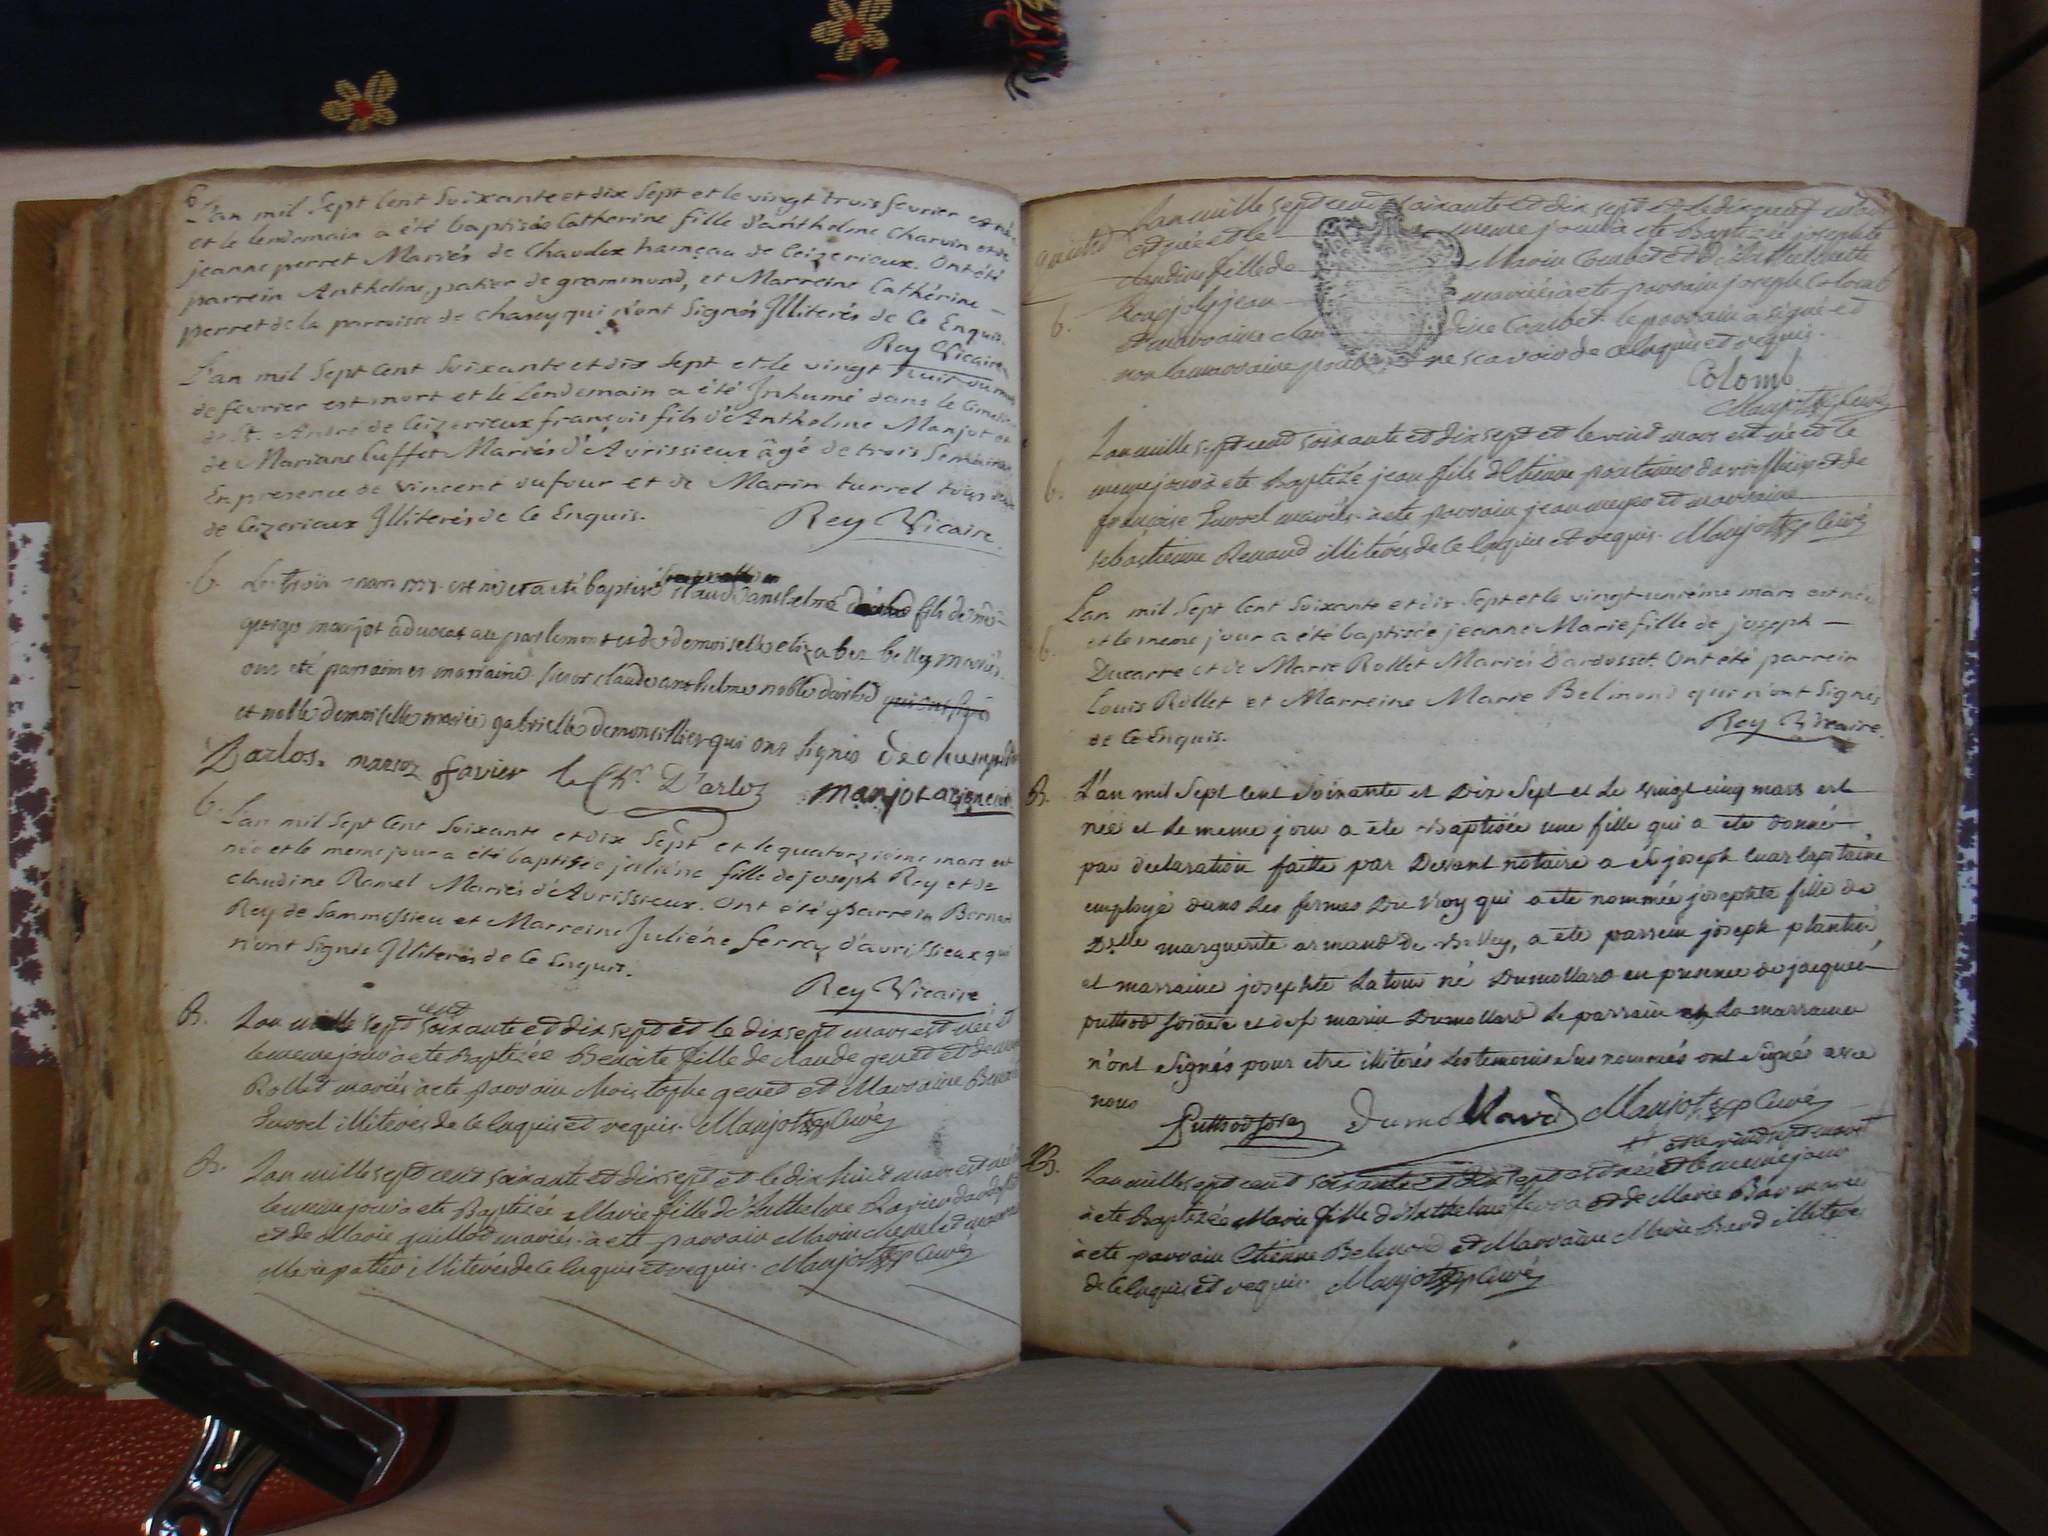 b
L'an mil Sept Cent Soixante et dix Sept et le vingt trois fevrier est née
et le lendemain a été baptisée Catherine fille d'anthelme Charvin et de
jeanne perret Mariés de Chaudex hameau de Ceizerieux. Ont été
parrein Anthelme patier de grammond, et Marreine Cathérine
perret de la parroisse de Chasey qui n'ont Signés Illiterés de Ce Enquis.
Rey Vicaire
L'an mil Sept Cent Soixante et dix Sept et le vingt huit du mois
de fevrier est mort et le Lendemain a été Inhumé dans le Cimetiere
de St. André de Ceizerieux françois fils d'Anthelme Manjot et
de Mariane Cuffet Mariés d'Avrissieux âgé de trois Semaines
En presence de Vincent dufour et de Marin turrel tous deux
de Ceizerieux Illiterés de Ce Enquis. Rey Vicaire.
b. Le trois mars 1777 est né et a été baptisé claude anthelme fils de me
george manjot advocat au parlement et de demoiselle elizabet belley mariés
ont été parrain et marraine sieur claude anthelme noble darlod qui ont signé
et noble demoiselle marie gabrielle demontillier qui ont signés
Darlos. marioz favier le Chr. D'arloz manjot
b. L'an mil Sept Cent Soixante et dix Sept et le quatorzième mars est
née et le meme jour a été baptisée juliéne fille de joseph Rey et de
claudine Ramel Mariés d'Avrissieux. Ont été parrein Bernard
Rey de Sammessieu et Marreine Juliéne ferra d'avrissieux qui
n'ont Signés Illiterés de Ce Enquis.
Rey Vicaire
B. L'an mille sept cent soixante et dix sept et le dix sept mars est née et
le meme jour à ete Baptizée Benoite fille de claude genet et de
Rollet mariés à ete parrain christophe genet et Marraine
turrel illiterés de ce enquis et requis. Manjot curé
B. L'an mille sept cent soixante et dix sept et le dix huit mars est née
le meme jour à ete Baptizée Marie fille d'Anthelme
et de Marie guillod mariés. à ete parrain Marin
Marie patier illiterés de ce enquis et requis. Manjot curé
L'an mille sept cent soixante et dix sept et le dix neuf mars
est née et le meme jour à ete Baptizée josephte
claudine fille de Marin Courbet et d'
mariés à ete parrain joseph Colomb
b. et marraine claudine Courbet. le parrain a signé et
non la marraine pour ne scavoir de ce enquis et requis.
Colomb
Manjot Curé
L'an mille sept cent soixante et dix sept et le vint mars est né et le
b. meme jour à ete Baptizé jean fils d'Etienne et de
françoise turrel mariés. à ete parrain jean et marraine
sebastienne Renaud illiterés de ce enquis et requis. Manjot Curé
L'an mil Sept Cent Soixante et dix Sept et le vingt unième mars est née
b. et le meme jour a été baptisée jeanne Marie fille de joseph
Ducarre et de Marie Rollet Mariés D'ardosset. Ont été parrein
Louis Rollet et Marreine Marie Belmond qui n'ont Signés
de Ce Enquis. Rey Vicaire.
B. L'an mil Sept cent soixante et Dix Sept et Le vingt cinq mars est
née et Le meme jour a ete Baptisée une fille qui a ete donné
par declaration faitte par Devant notaire a Sr joseph Capitaine
employé dans Les fermes Du Roy qui a ete nommée josephte fille de
Dlle marguerite armand de Belley, a ete parrein joseph plantin,
et marraine josephte Latour né Dumollard en presence de jacques
puthod et de Sr marin Dumollard Le parrain et La marraine
n'ont Signés pour etre illiterés Les temoins Sus nommés ont Signés avec
nous
Puthod Dumollard Manjot Curé
# et le vint sept mars
B. L'an mille sept cent soixante et dix sept est née et le meme jour
à ete Baptizée Marie fille d'Anthelme ferra et de Marie Bar mariés
à ete parrain Etienne Belmond et Marraine Marie illiterés
de ce enquis et requis. Manjot Curé